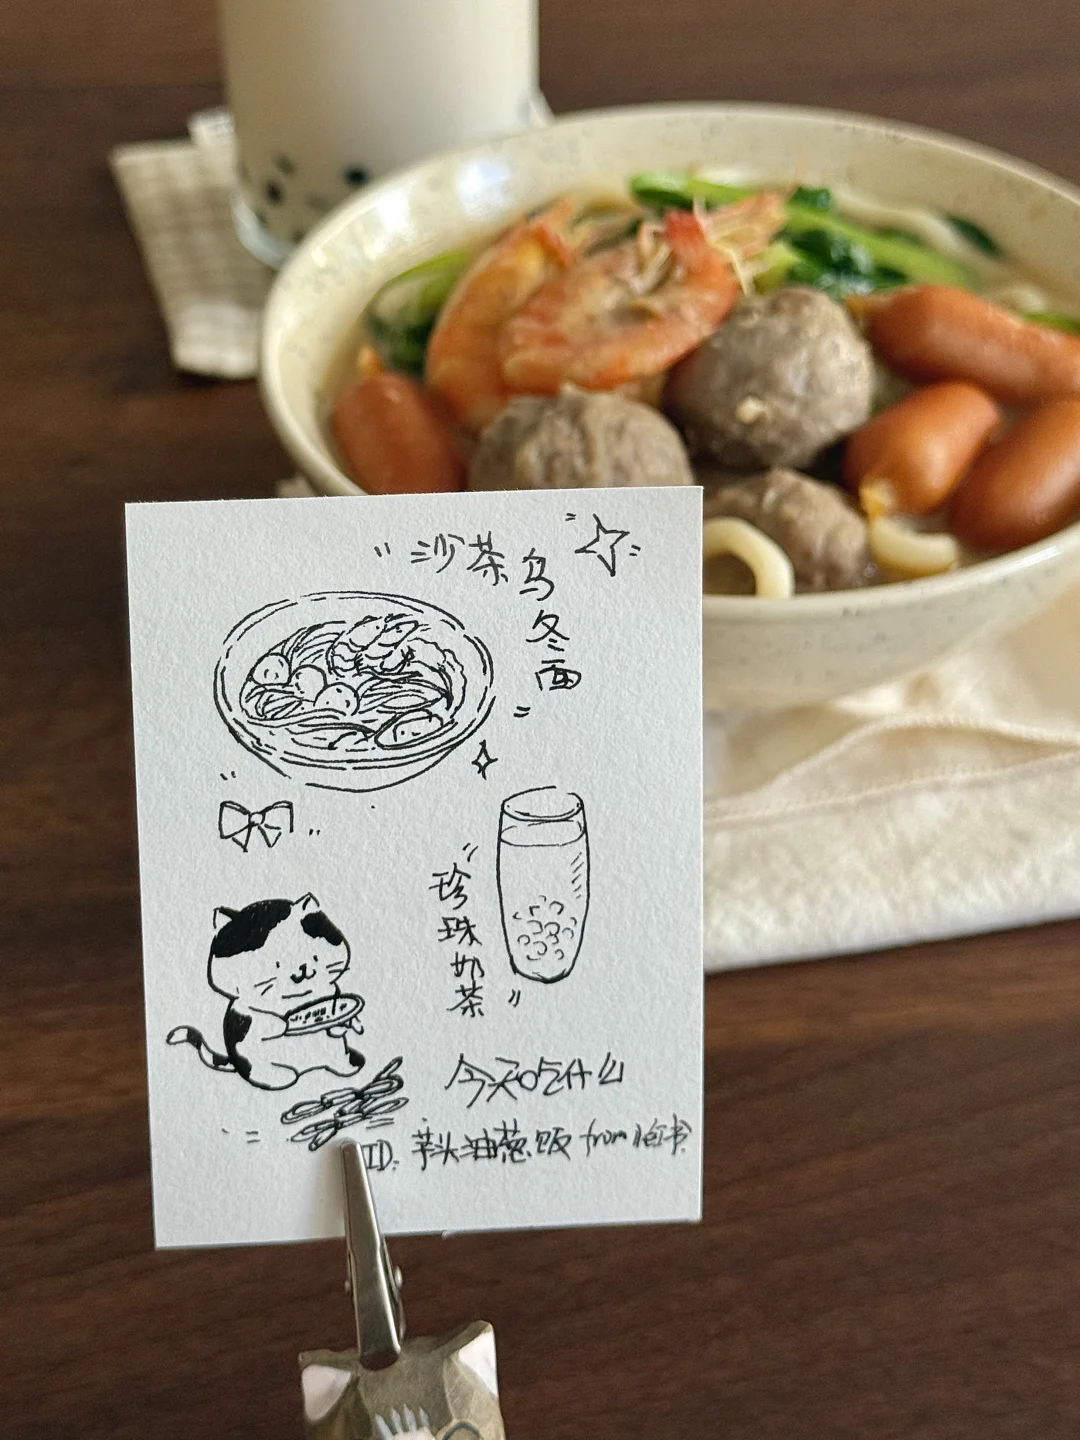 沙茶乌冬面
珍珠奶茶
今天吃什么
ID: 芋头油葱饭 from 小红书